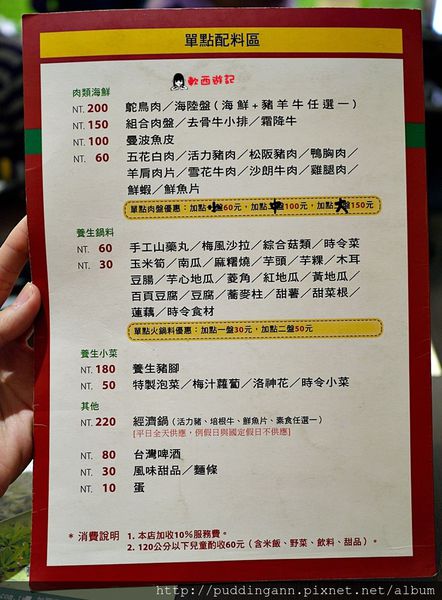 單點配料區
軟西遊記
肉類海鮮
NT. 200 鴕鳥肉／海陸盤(海鮮+豬羊牛任選一)
NT. 150 組合肉盤／去骨牛小排／霜降牛
NT. 100 曼波魚皮
NT. 60 五花白肉／活力豬肉／松阪豬肉／鴨胸肉／
羊肩肉片／雪花牛肉／沙朗牛肉／雞腿肉／
鮮蝦／鮮魚片
單點肉盤優惠：加點小盤60元，加點中盤100元，加點大盤150元
養生鍋料
NT. 60 手工山藥丸／梅風沙拉／綜合菇類／時令菜
NT. 30 玉米筍／南瓜／麻糬燒／芋頭／芋粿／木耳
豆腸／芋心地瓜／菱角／紅地瓜／黃地瓜／
百頁豆腐／豆腐／蕎麥柱／甜薯／甜菜根／
蓮藕／時令食材
單點火鍋料優惠：加點一盤30元，加點二盤50元
養生小菜
NT. 180 養生豬腳
NT. 50 特製泡菜／梅汁蘿蔔／洛神花／時令小菜
其他
NT. 220 經濟鍋(活力豬、培根牛、鮮魚片、素食任選一)
[平日全天供應，例假日與國定假日不供應]
NT. 80 台灣啤酒
NT. 30 風味甜品／麵條
NT. 10 蛋
* 消費說明 1. 本店加收10%服務費。
2. 120公分以下兒童酌收60元(含米飯、野菜、飲料、甜品)。*
http://puddingann.pixnet.net/album